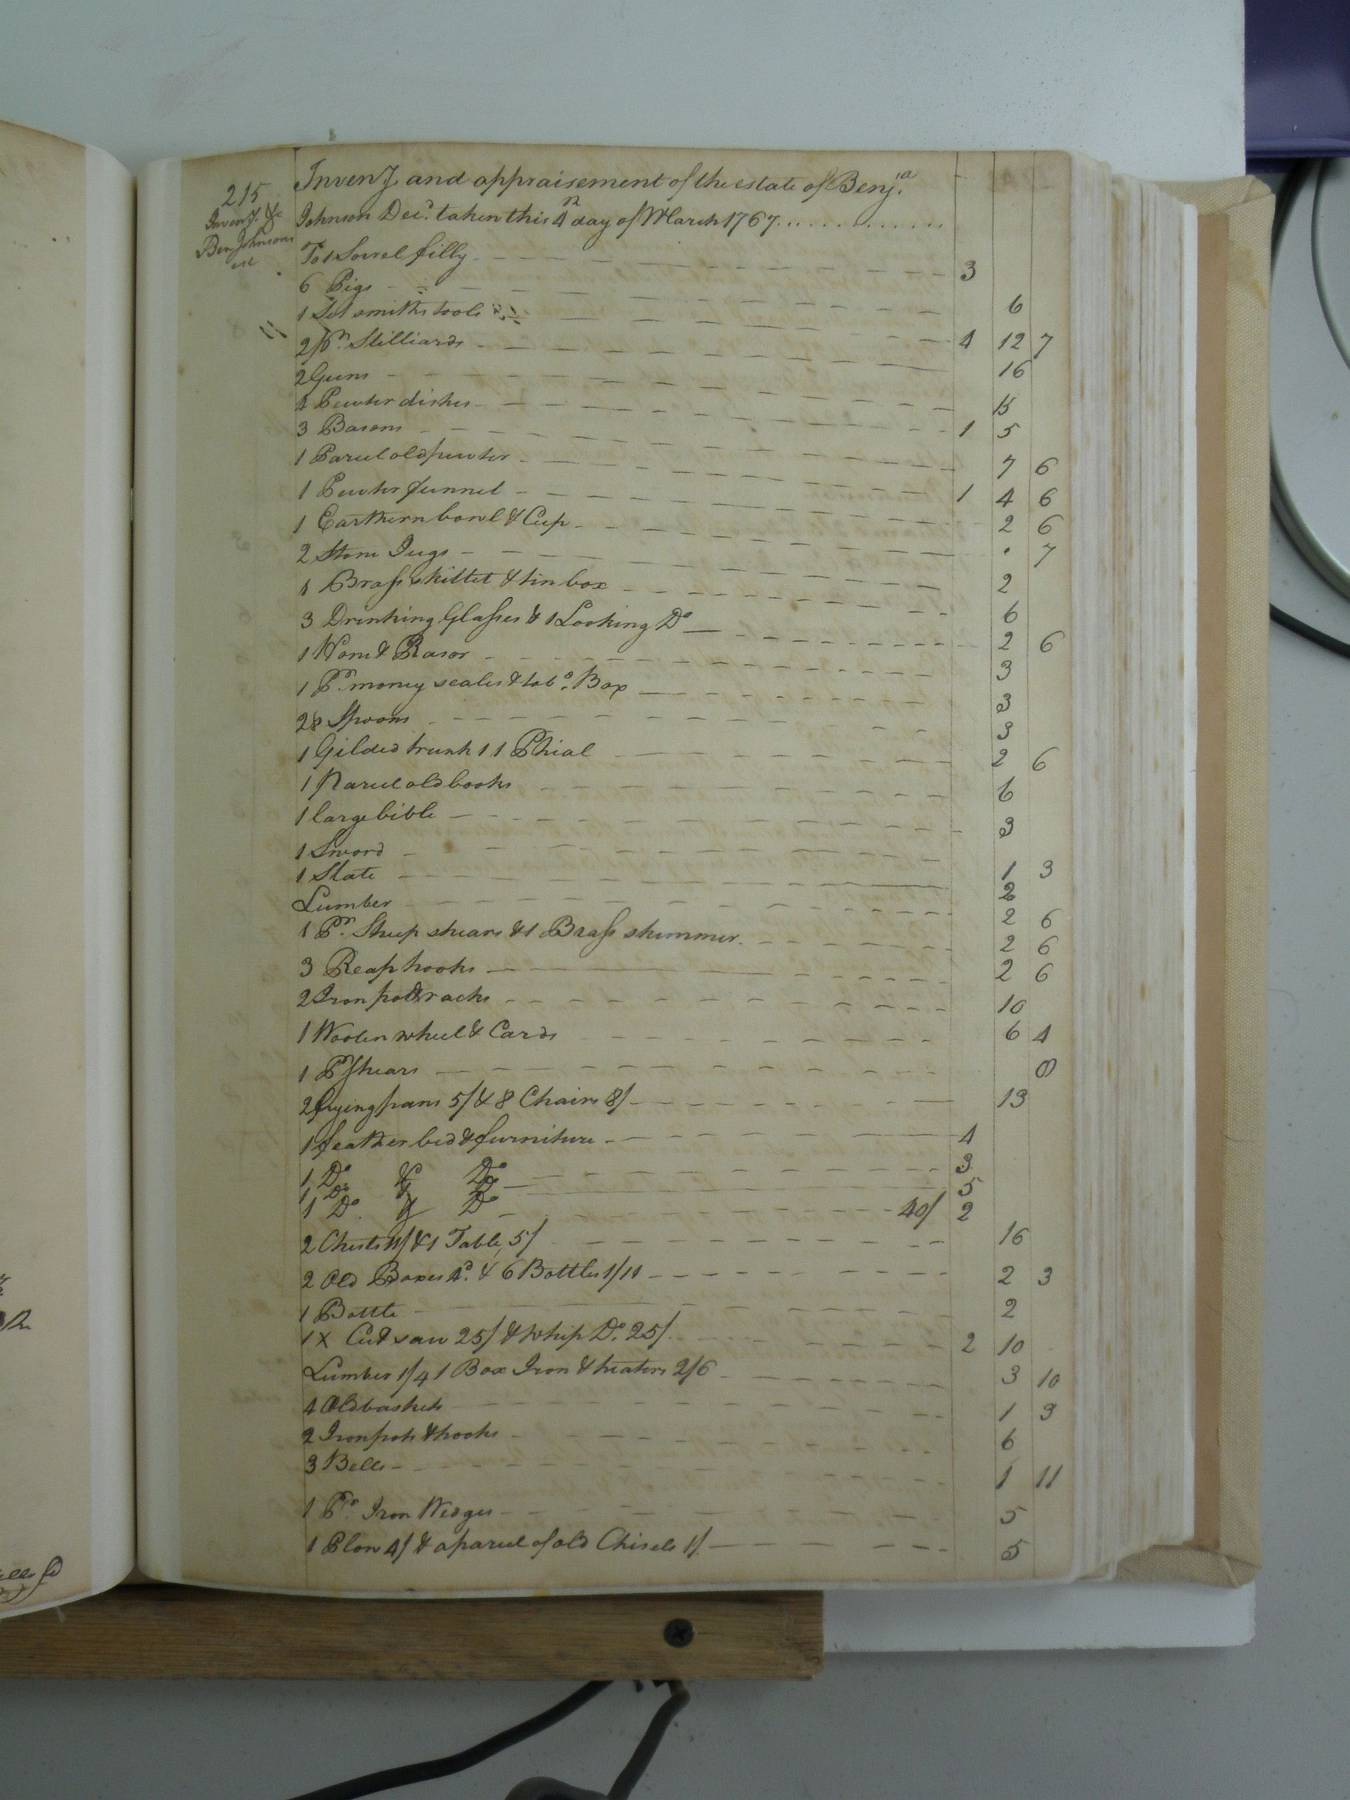 215
Inven.y &c
Ben Johnsons
est
Inven.y and appraisement of the estate of Benj.a
Johnson Dec.d taken this 4th day of March 1767
To 1 Sorrel filly 3
6 Pigs 6
1 Set smiths tools 4 12 7
2 Pr. Stilliards 16
2 Guns 15
4 Pewter dishes 1 5
3 Basons 7 6
1 Parcel old pewter 1 4 6
1 Pewter funnel 2 6
1 Earthern bowl & Cup 7
2 Stone Jugs 2
1 Brass skillet & tin box 6
3 Drinking Glasses & 1 Looking Do 2 6
1 Hone & Rasor 3
1 Pr. money scales & tob.o Box 3
28 Spoons 3
1 Gilded trunk 1 1 Phial 2 6
1 Parcel old books 6
1 large bible 3
1 Sword
1 Slate 1 3
Lumber 2
1 Pr. Sheep shears & 1 Brass skimmer 2 6
3 Reap hooks 2 6
2 Iron pot racks 10
1 Woolen wheel & Cards 6 4
1 Pr Shears 8
2 frying pans 5/ & 8 Chairs 8/ 13
1 feather bed & furniture 4
1 Do & Do 3
1 Do & Do 5
1 Do & Do 40/ 2
2 Chests 11/ & 1 Table, 5/ 16
2 Old Boxes 4d. & 6 Bottles 1/11 2 3
1 Bottle 2
1 X Cut saw 25/ & Whip Do. 25/ 2 10
Lumber 1/4 1 Box Iron & heaters 2/6 3 10
4 Old baskets 1 3
2 Iron pots & hooks 6
3 Bells 1 11
1 Pr. Iron Wedges 5
1 Plow 4/ & a parcel of old Chisels 1/ 5